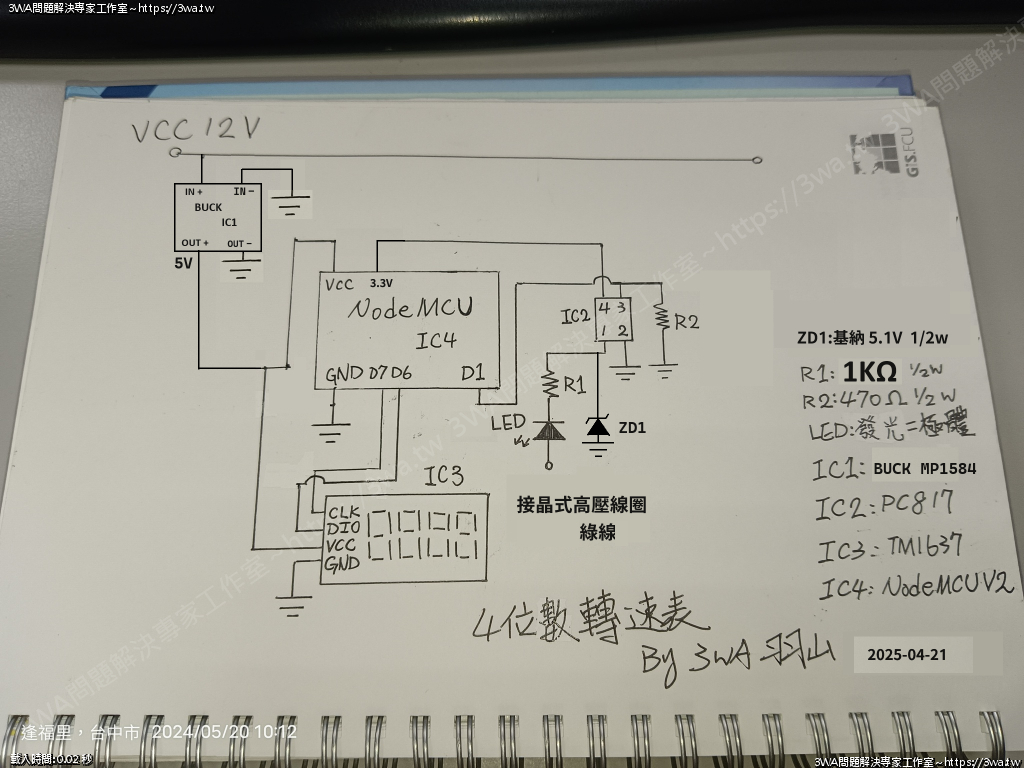 3WA問題解決專家工作室~https://3wa.tw
VCC 12V
GIS.FCU
IN+ IN-
BUCK
IC1
OUT+ OUT-
5V
VCC 3.3V
NodeMCU
IC4
GND D7 D6 D1
IC2
4 3
1 2
R2
R1
LED
ZD1
接晶式高壓線圈
綠線
IC3
CLK
DIO
VCC
GND
ZD1:基納 5.1V 1/2w
R1: 1KΩ 1/2W
R2:470Ω 1/2W
LED:發光二極體
IC1: BUCK MP1584
IC2: PC817
IC3: TM1637
IC4: NodeMCU V2
4位數轉速表
By 3WA 羽山
2025-04-21
逢福里，台中市 2024/05/20 10:12
載入時間:0.02 秒
3WA問題解決專家工作室~https://3wa.tw